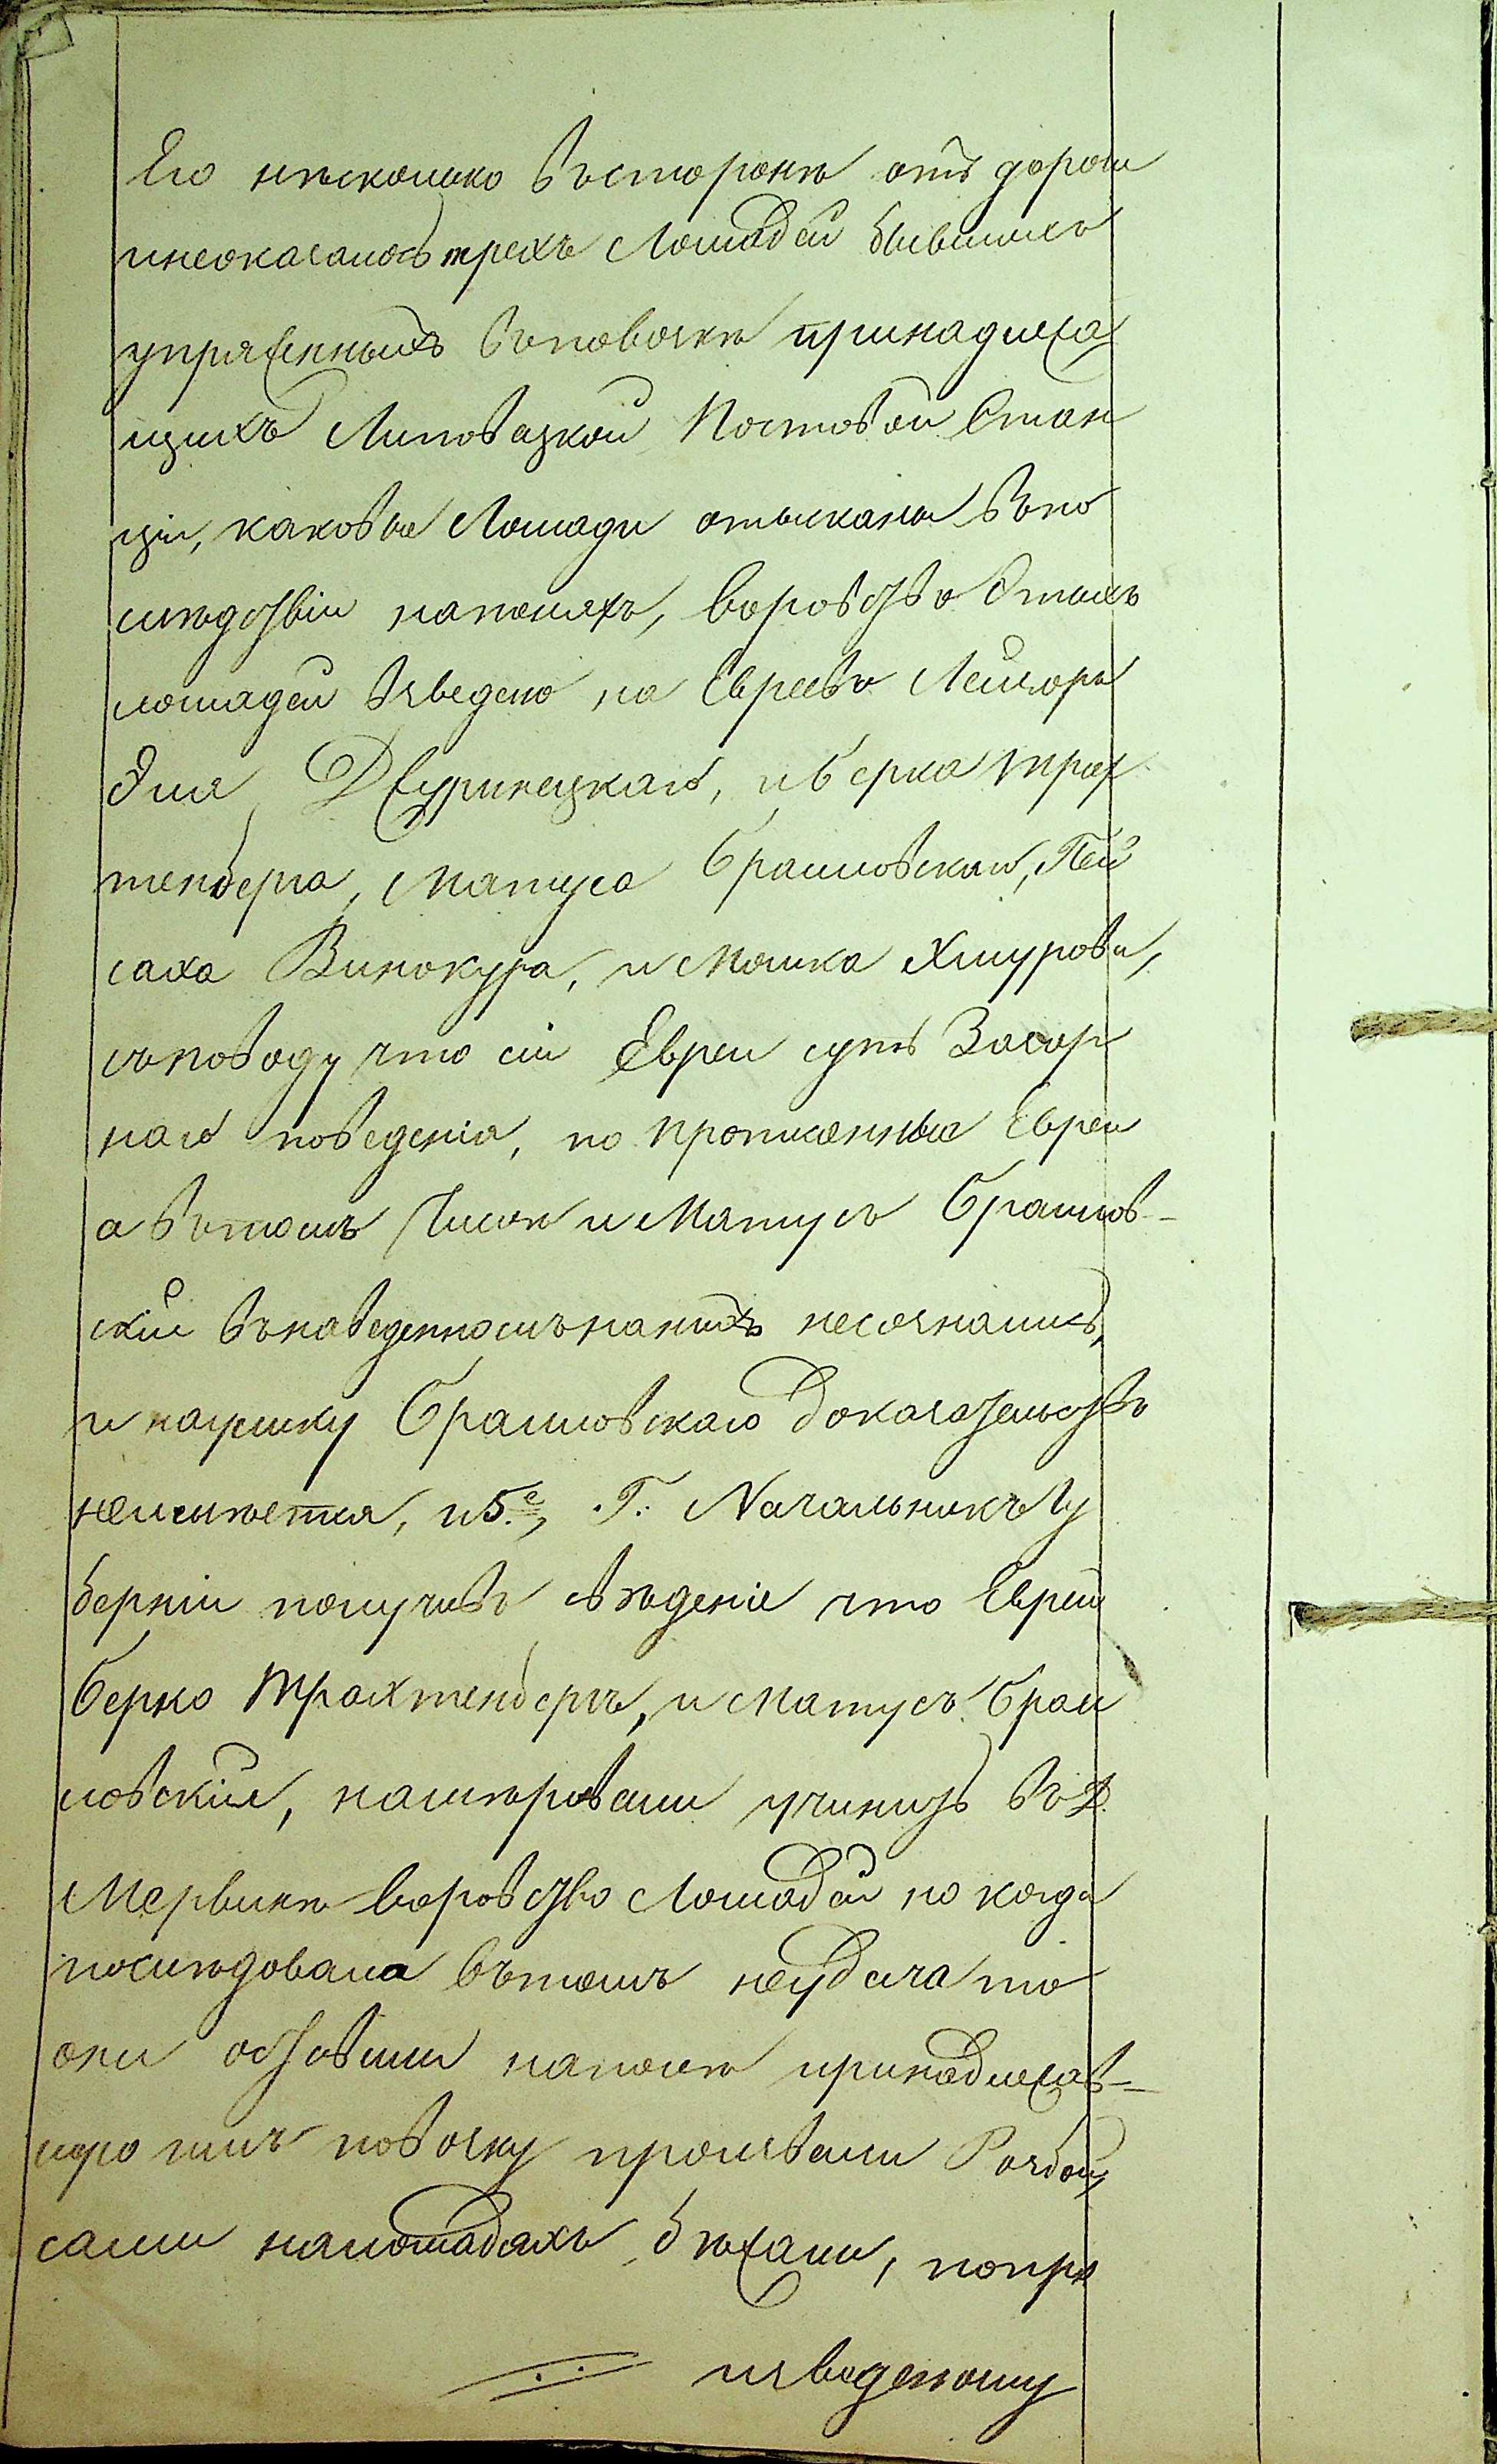 Его нѣсколько въсторонѣ отъ дороги
инеоказалось трехъ Лошадей бывшихъ
упряженныхъ въповозкѣ принадлежа
щихъ Липовецкой Почтовой Стан
ціи, каковые Лошади отысканы въпо
слѣдствіи наполяхъ, воровство Этихъ
лошадей взведено на Евреевъ Лейзора
Эля Джуринецкаго, иберка Трах
тенберга, Матуса Браиловскаго, Пей
саха Винокура, и Мошка Хмурова,
споводу что сіи Евреи суть Зазор
наго поведенія, но прописанные Евреи
а въ томъ Числѣ и Матусъ Браилов-
скій въ наведенномъ нанихъ несознались,
и наулику Браиловскаго доказательствъ
неимѣется, и 5.е, Г. Начальникъ Гу
берніи получивъ свѣденіе что Евреи
Берко Трахтенбергъ, и Матусъ Браи
ловскій, намѣровали учинить въ Д.
Мервинѣ воровство Лошадей но когда
послѣдовала въ томъ неудача то
они оставили наполѣ принадлежав-
шую имъ повозку произвели Разбой
сами налошадяхъ бѣжали, попро
изведеному